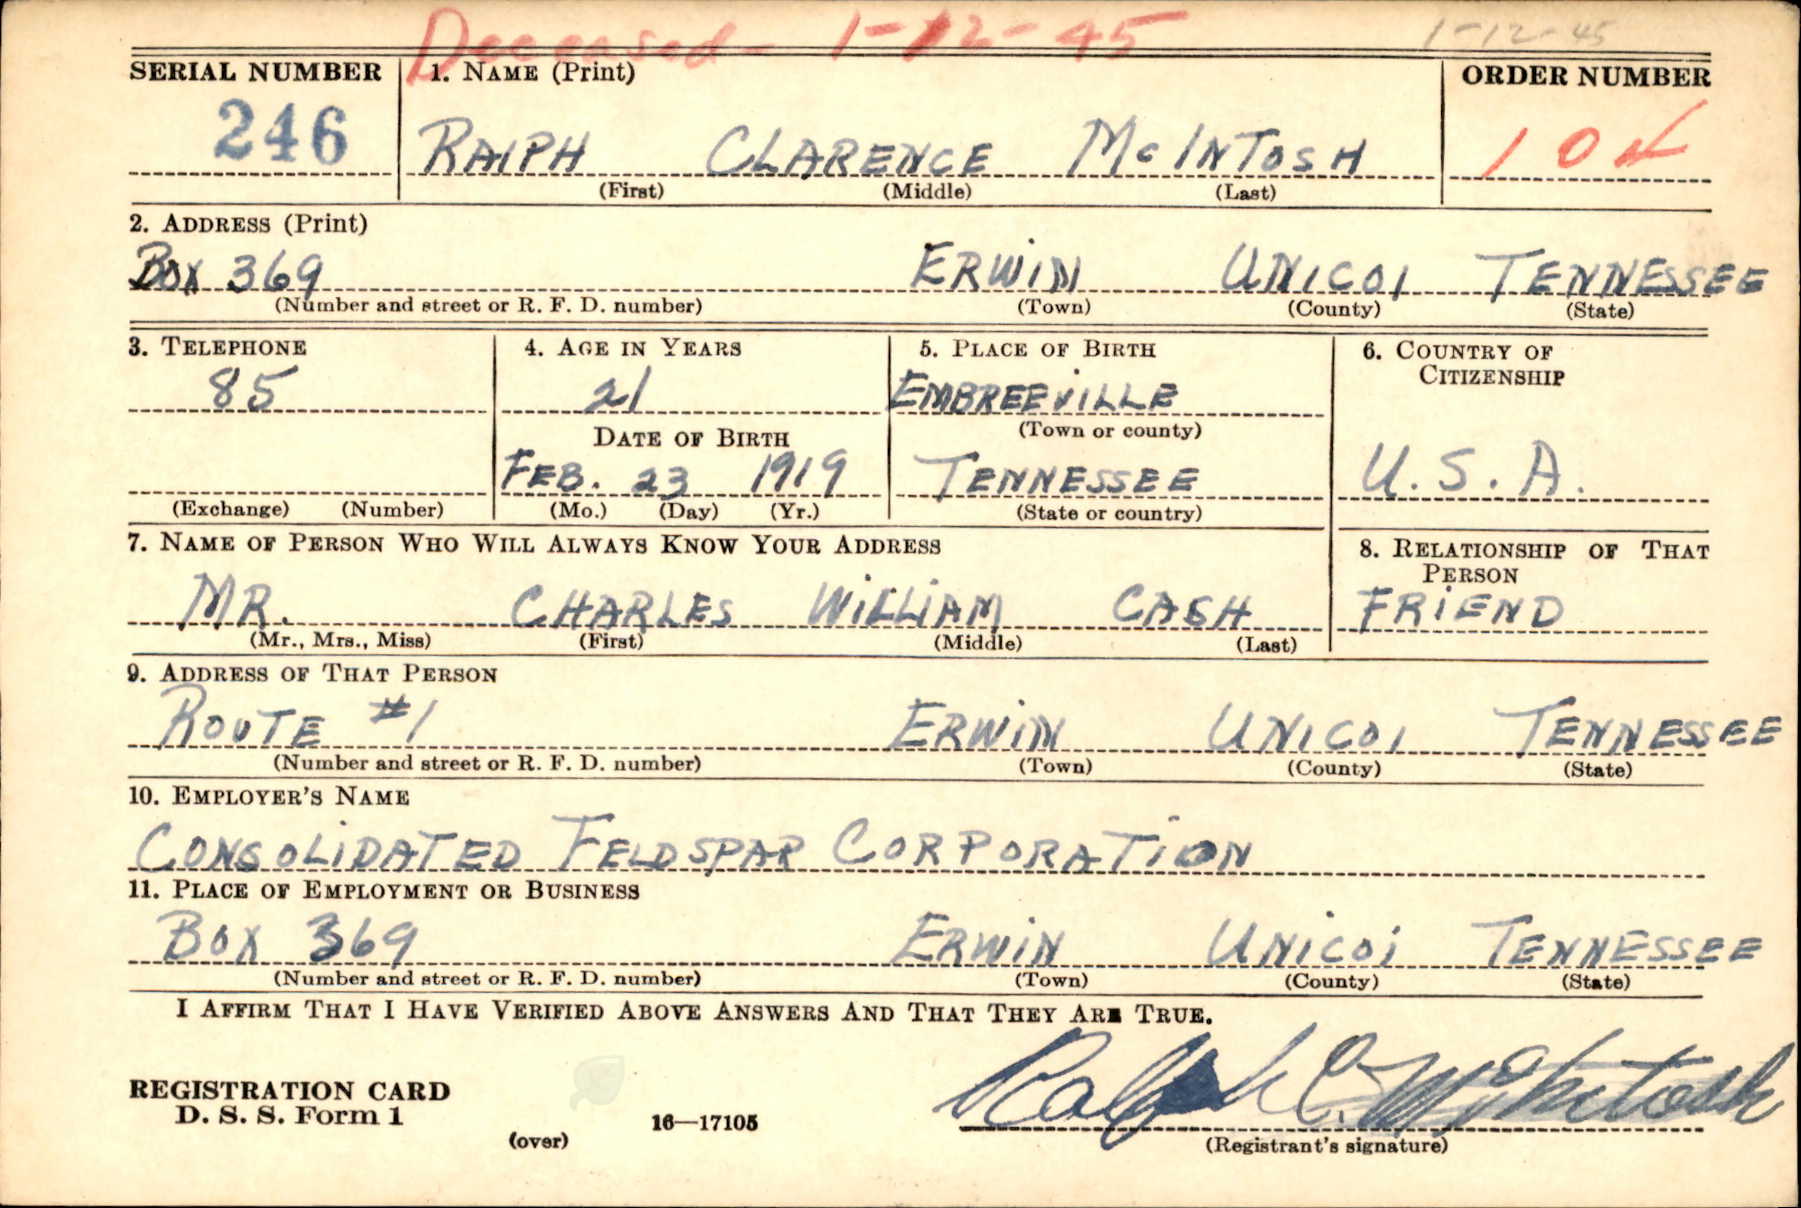 Deceased - 1-12-45 1-12-45
SERIAL NUMBER 1. NAME (Print) ORDER NUMBER
246 RALPH CLARENCE McINTOSH 104
(First) (Middle) (Last)
2. ADDRESS (Print)
BOX 369 ERWIN UNICOI TENNESSEE
(Number and street or R. F. D. number) (Town) (County) (State)
3. TELEPHONE 4. AGE IN YEARS 5. PLACE OF BIRTH 6. COUNTRY OF
CITIZENSHIP
85 21 EMBREEVILLE
DATE OF BIRTH (Town or county)
FEB. 23 1919 TENNESSEE U.S.A.
(Exchange) (Number) (Mo.) (Day) (Yr.) (State or country)
7. NAME OF PERSON WHO WILL ALWAYS KNOW YOUR ADDRESS 8. RELATIONSHIP OF THAT
PERSON
MR. CHARLES WILLIAM CASH FRIEND
(Mr., Mrs., Miss) (First) (Middle) (Last)
9. ADDRESS OF THAT PERSON
ROUTE #1 ERWIN UNICOI TENNESSEE
(Number and street or R. F. D. number) (Town) (County) (State)
10. EMPLOYER'S NAME
CONSOLIDATED FELDSPAR CORPORATION
11. PLACE OF EMPLOYMENT OR BUSINESS
BOX 369 ERWIN UNICOI TENNESSEE
(Number and street or R. F. D. number) (Town) (County) (State)
I AFFIRM THAT I HAVE VERIFIED ABOVE ANSWERS AND THAT THEY ARE TRUE.
REGISTRATION CARD
D. S. S. Form 1 16—17105 Ralph C. McIntosh
(over) (Registrant's signature)